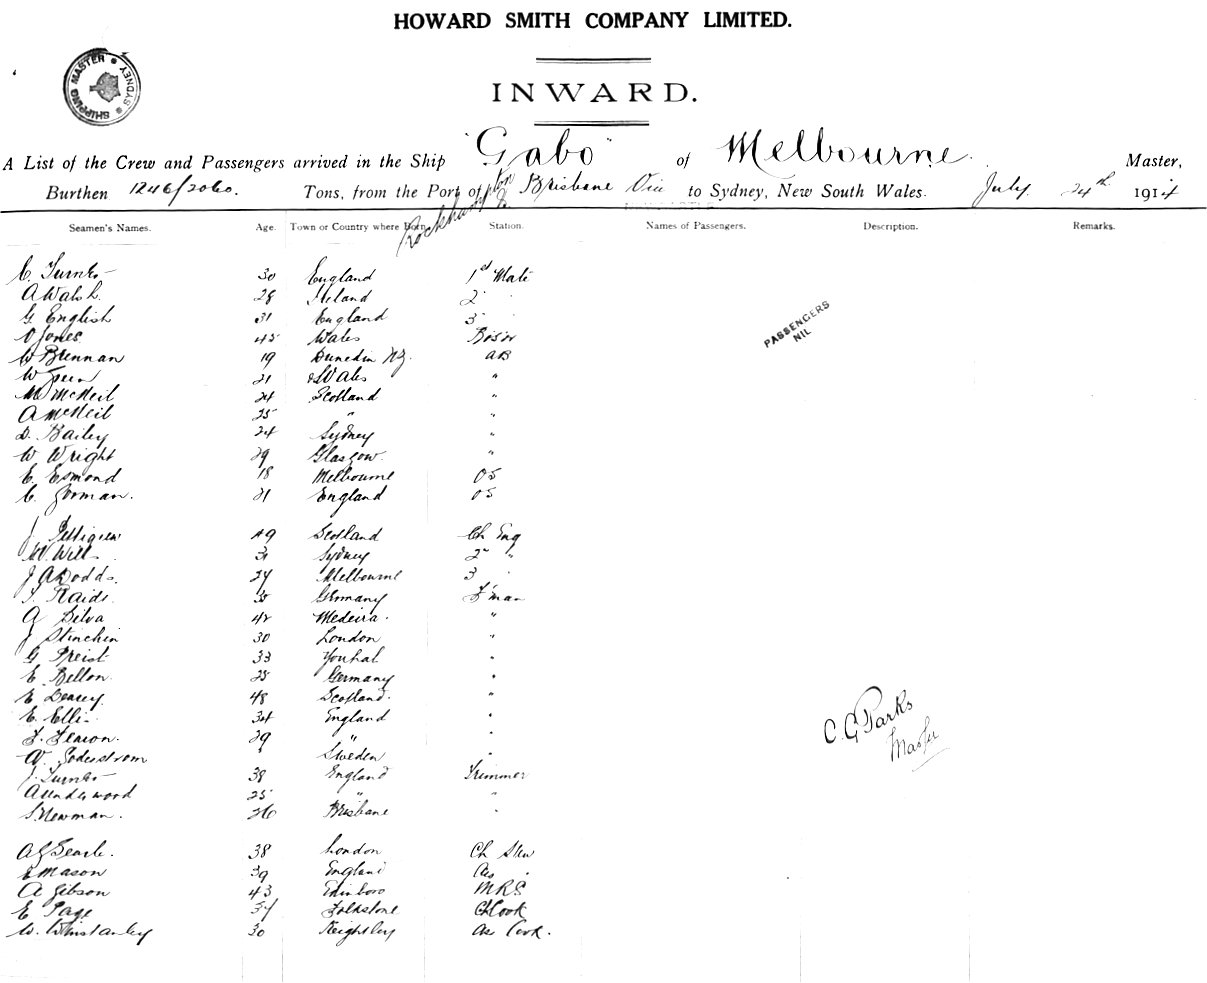 HOWARD SMITH COMPANY LIMITED.
SHIPPING MASTER SYDNEY
INWARD.
A List of the Crew and Passengers arrived in the Ship "Gabo" of Melbourne. Master,
Burthen 1246/2060. Tons, from the Port of Rockhampton & Brisbane Via to Sydney, New South Wales. July 24th 1914
Seamen's Names. Age. Town or Country where Born. Station. Names of Passengers. Description. Remarks.
C. Turner 30 England 1st Mate
A Walsh. 28 Ireland 2 "
G English 31 England 3 "
PASSENGERS NIL
O Jones 45 Wales Bos'n
W Brennan 19 Dunedin NZ. AB
W 21 Wales "
M McNeil 24 Scotland "
A McNeil 25 " "
D. Bailey 24 Sydney "
W Wright 29 Glasgow. "
E. Esmond 18 Melbourne OS
C. Gorman. 21 England OS
J. Pettigrew 49 Scotland Ch Eng
W. Wills 31 Sydney 2nd "
J A Dodds. 27 Melbourne 3 "
Raids. Germany F'man
A Silva 42 Medeira. "
J Stinchin 30 London "
G Preist 33 Youhal "
E Bellon. 25 Germany "
E Deasey. 48 Scotland. "
E. Ellis 34 England "
C. G Parks
Master
F. Fearon. 29 " "
W. Soderstrom Sweden "
J. Turner 38 England Trimmer
A Underwood 25 " "
S. Newman. 26 Brisbane "
A G Searle. 38 London Ch Stew
E Mason 39 England As.
A Gibson 43 Edinboro MRS
E Page 37 Folkstone Ch Cook
W. Winstanley 30 Keighley Ass Cook.